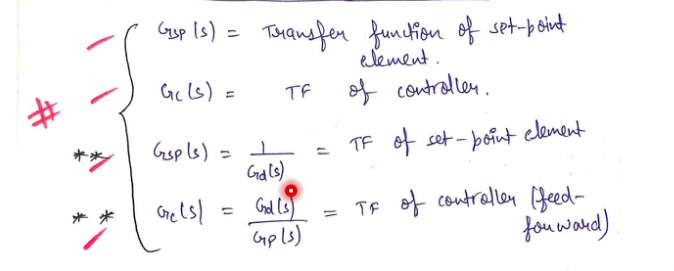 Gsp(s) = Transfer function of set-point
element.
# Gc(s) = TF of controller.
** Gsp(s) = 1/Gd(s) = TF of set-point element
** Gc(s) = Gd(s)/Gp(s) = TF of controller (feed-
forward)